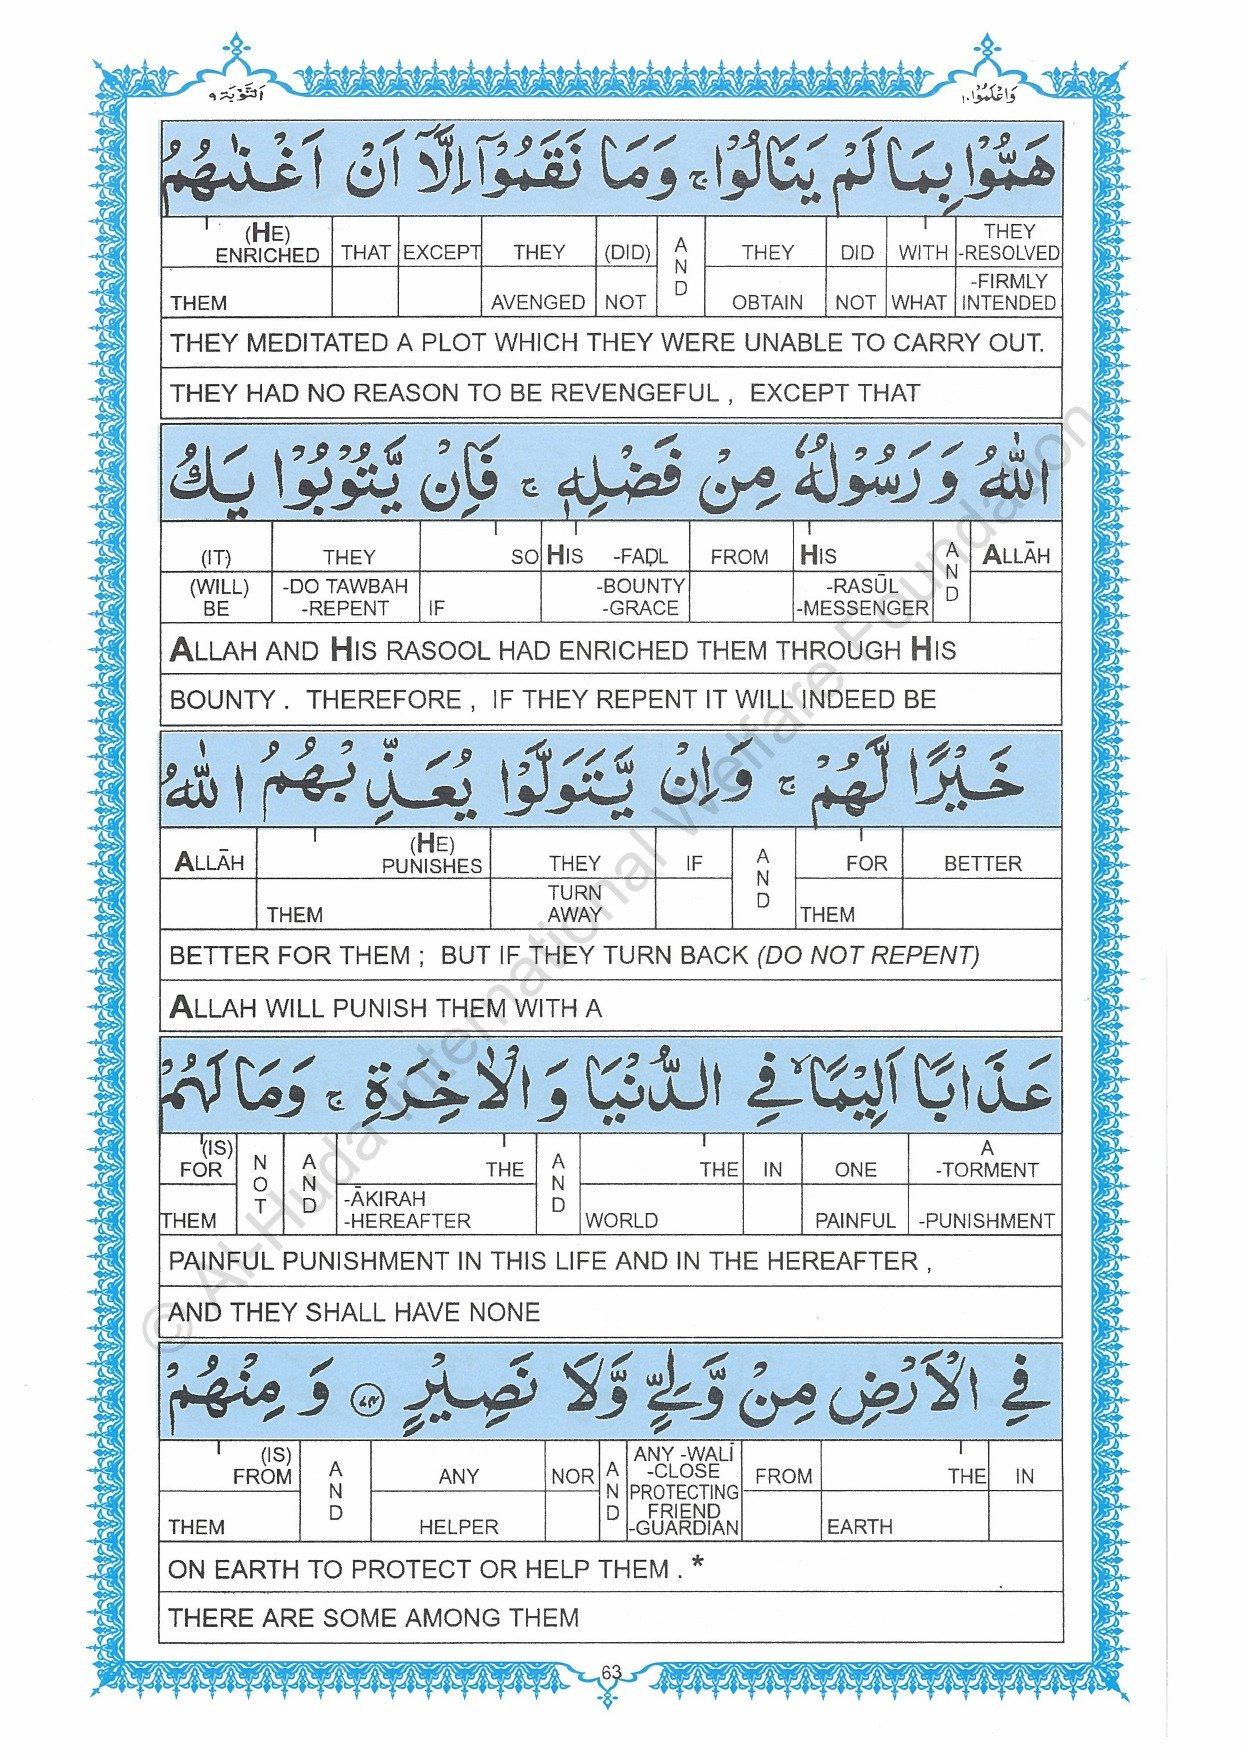 التوبة ٩
واعلموا ١٠
هَمُّوْا بِمَا لَمْ يَنَالُوْا ۚ وَمَا نَقَمُوْٓا اِلَّآ اَنْ اَغْنٰىهُمُ
(HE) ENRICHED THAT EXCEPT THEY (DID) AND THEY DID WITH THEY -RESOLVED
THEM AVENGED NOT OBTAIN NOT WHAT -FIRMLY INTENDED
THEY MEDITATED A PLOT WHICH THEY WERE UNABLE TO CARRY OUT.
THEY HAD NO REASON TO BE REVENGEFUL , EXCEPT THAT
اللّٰهُ وَ رَسُوْلُهٗ مِنْ فَضْلِهٖ ۚ فَاِنْ يَّتُوْبُوْا يَكُ
(IT) THEY SO HIS -FAḌL FROM HIS AND ALLĀH
(WILL) BE -DO TAWBAH -REPENT IF -BOUNTY -GRACE -RASŪL -MESSENGER
ALLAH AND HIS RASOOL HAD ENRICHED THEM THROUGH HIS
BOUNTY . THEREFORE , IF THEY REPENT IT WILL INDEED BE
خَيْرًا لَّهُمْ ۚ وَاِنْ يَّتَوَلَّوْا يُعَذِّبْهُمُ اللّٰهُ
ALLĀH (HE) PUNISHES THEY IF AND FOR BETTER
THEM TURN AWAY THEM
BETTER FOR THEM ; BUT IF THEY TURN BACK (DO NOT REPENT)
ALLAH WILL PUNISH THEM WITH A
عَذَابًا اَلِيْمًا ۙ فِي الدُّنْيَا وَ الْاٰخِرَةِ ۚ وَمَا لَهُمْ
(IS) FOR NOT AND THE AND THE IN ONE A -TORMENT
THEM -ĀKIRAH -HEREAFTER WORLD PAINFUL -PUNISHMENT
PAINFUL PUNISHMENT IN THIS LIFE AND IN THE HEREAFTER ,
AND THEY SHALL HAVE NONE
فِي الْاَرْضِ مِنْ وَّلِيٍّ وَّلَا نَصِيْرٍ ﴿۷۴﴾ وَ مِنْهُمْ
(IS) FROM AND ANY NOR AND ANY -WALĪ -CLOSE PROTECTING FRIEND -GUARDIAN FROM THE IN
THEM HELPER EARTH
ON EARTH TO PROTECT OR HELP THEM . *
THERE ARE SOME AMONG THEM
63
© Al-Huda International Welfare Foundation